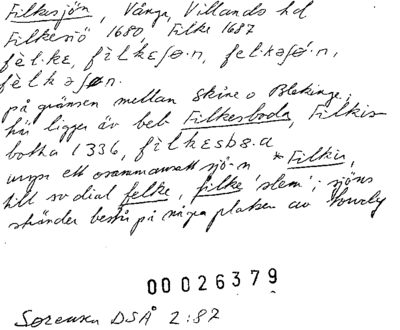 Filkesjön, Vånga, Villands hd
Filkesiö 1680, Filke 1687
fèl·kɛ, fìlkɛʃø·n, fel·kəʃǿ·n,
fèlkəʃøn.
på gränsen mellan Skåne o Blekinge.
här ligger äv beb Filkesboda, Filkis-
botha 1336, fìlkɛsbo·a
urspr ett osammansatt sjö-n *Filkir,
till sv dial felke, filke 'slem'; sjöns
stränder består på några platser av
00026379
Sørensen DSÅ 2:87